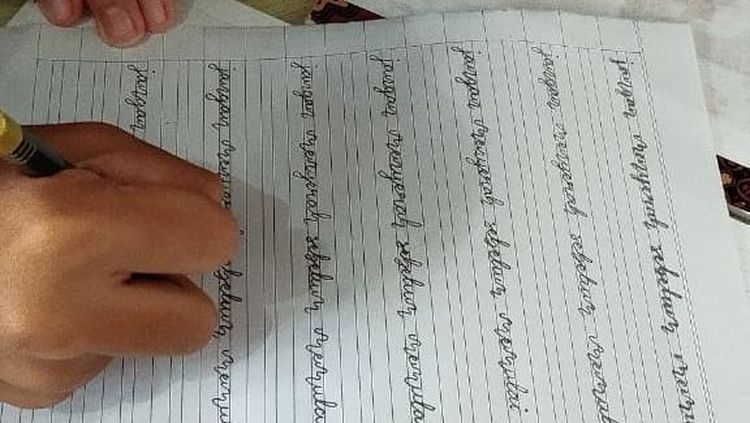 jangan menyerah sebelum mem
jangan menyerah sebelum memul
jangan menyerah sebelum memulai
jangan menyerah sebelum memula
jangan menyerah sebelum memula
jangan sebelum memu
jangan